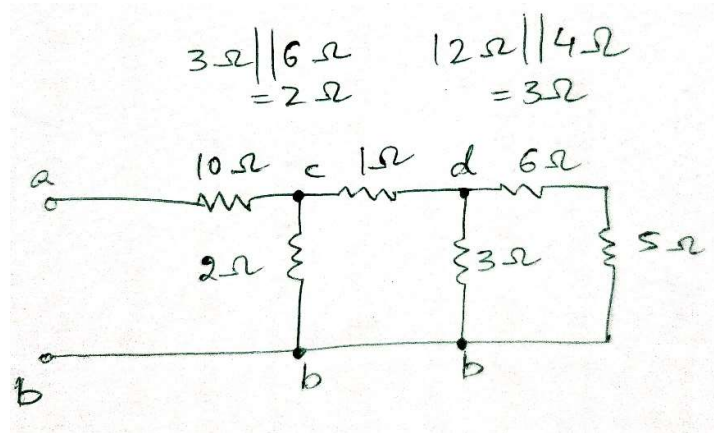 3Ω||6Ω 12Ω||4Ω
=2Ω =3Ω
a 10Ω c 1Ω d 6Ω
2Ω 3Ω 5Ω
b b b